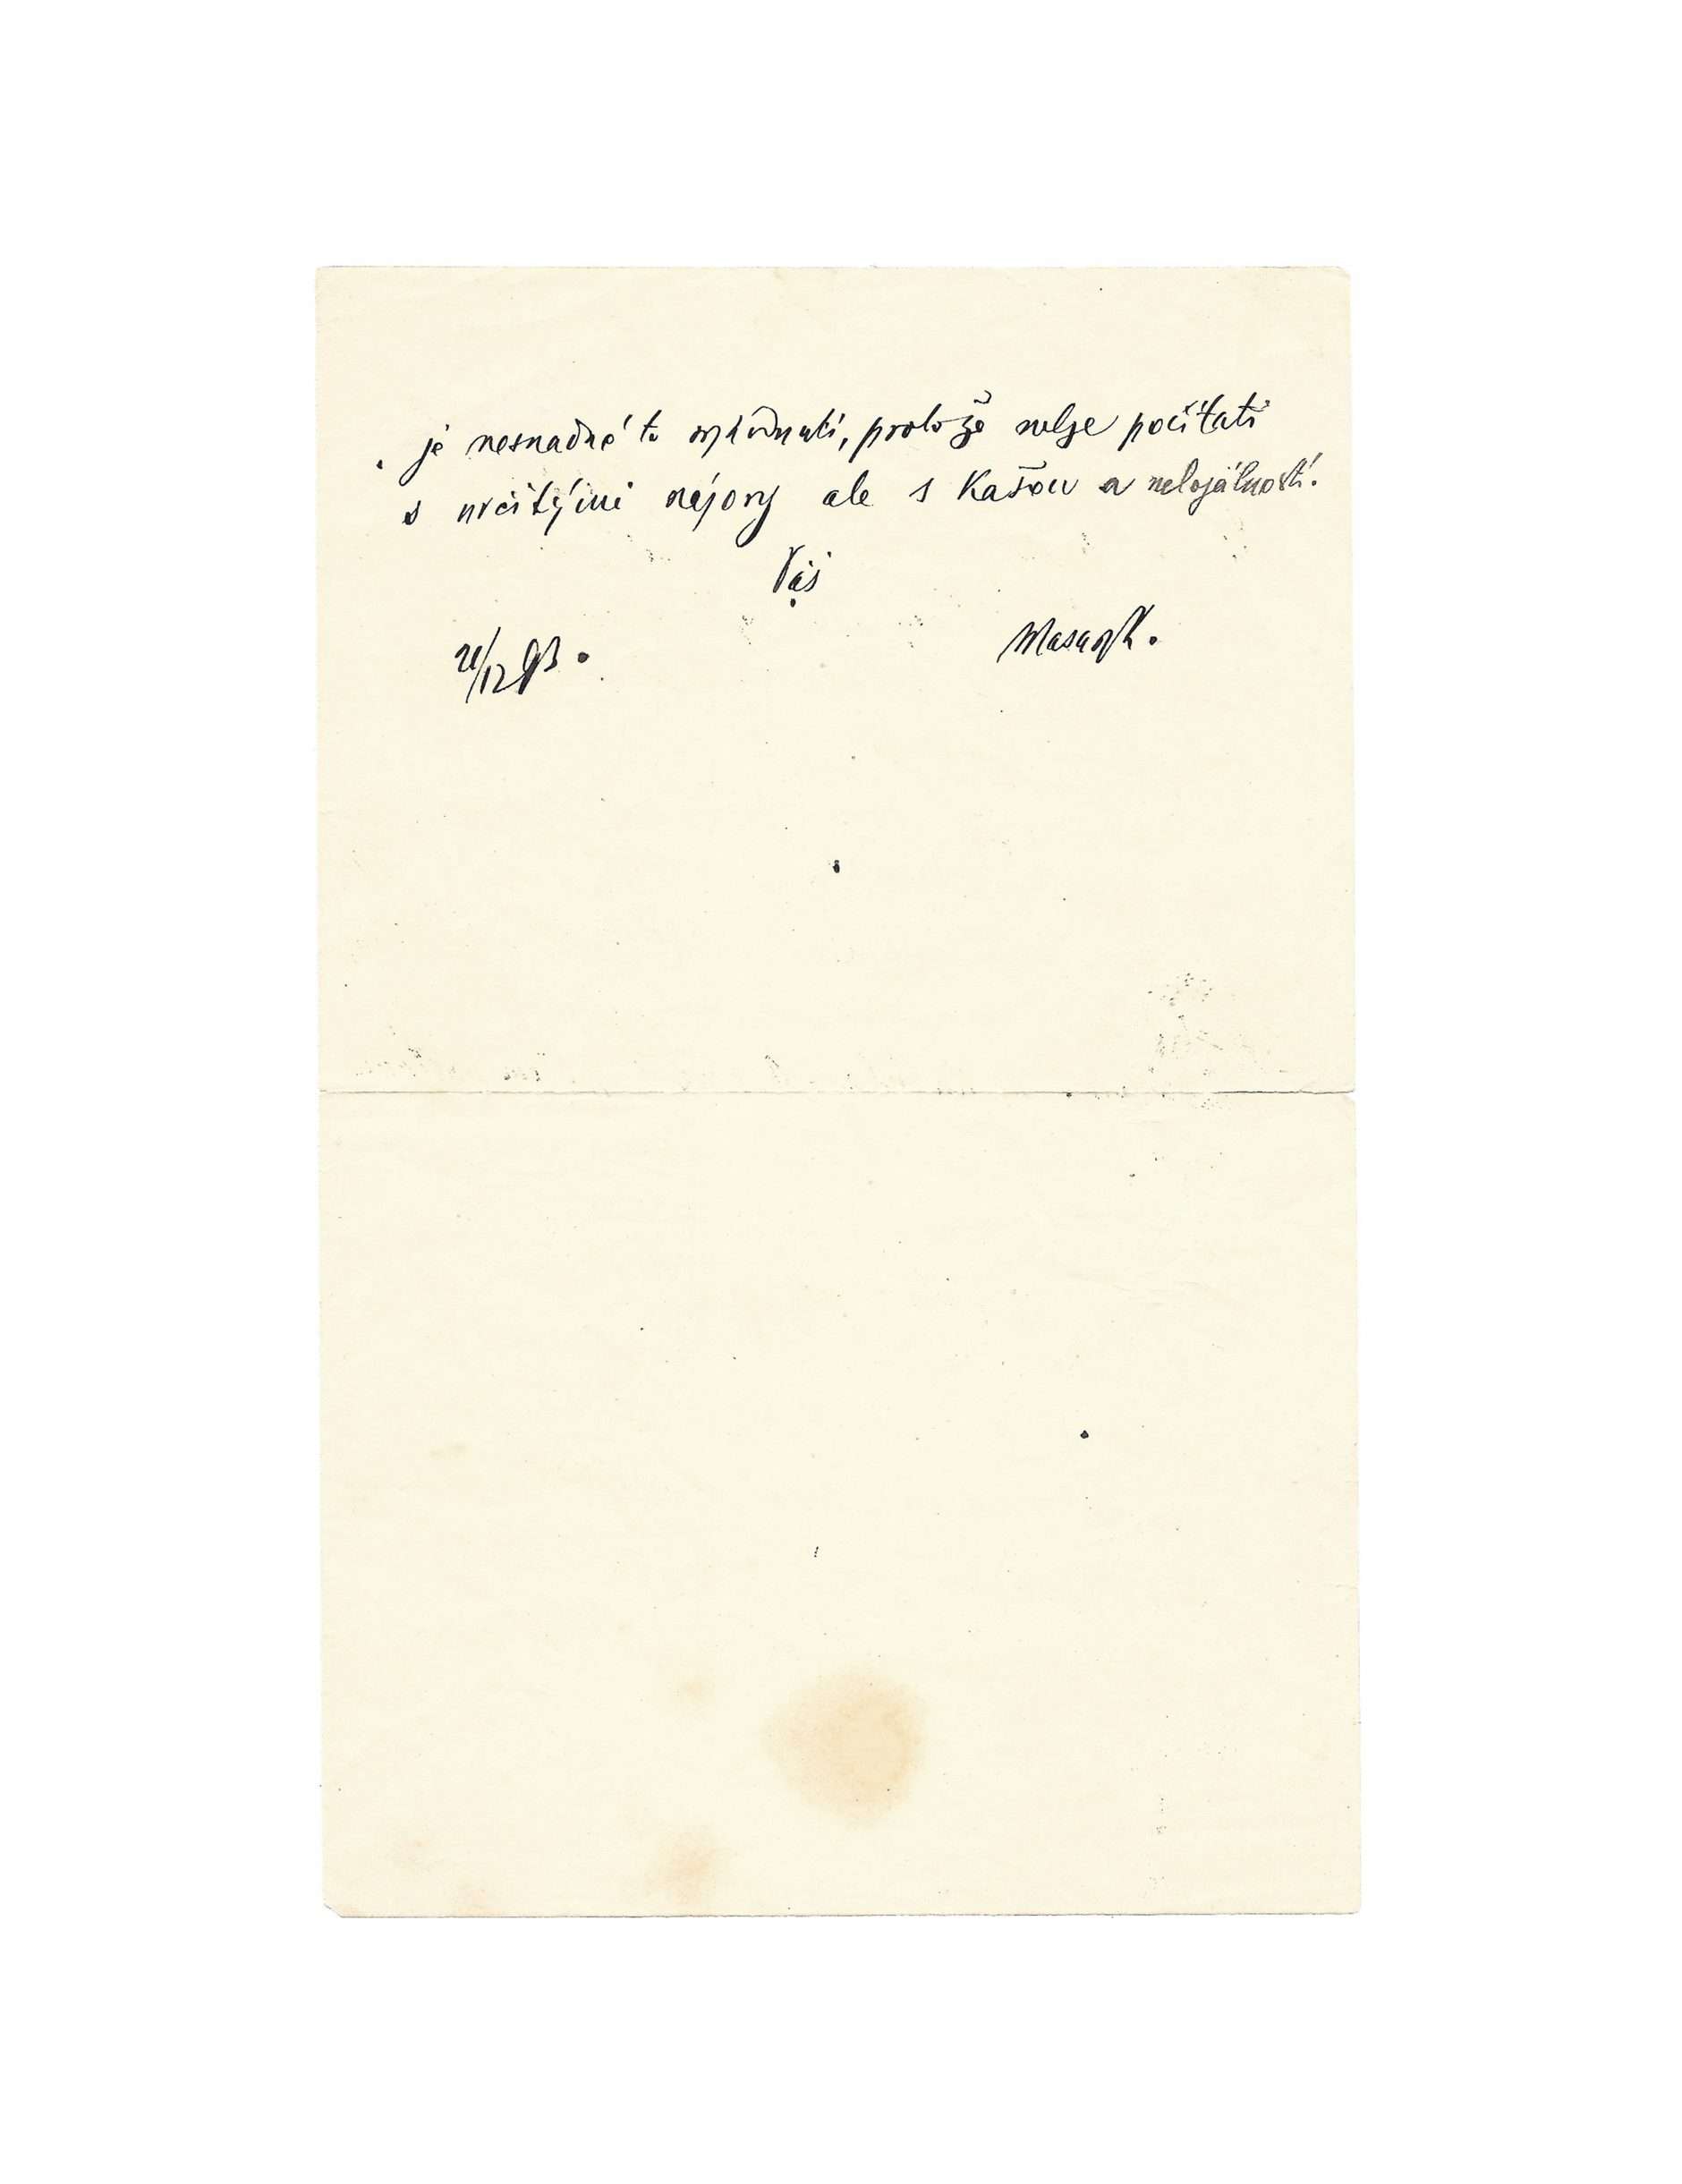 je nesnadné to vyhodnuti, protože nelze počítati
s určitými názory ale s Kašou a nelojálností.
Váš
Masaryk.
21/12 93.